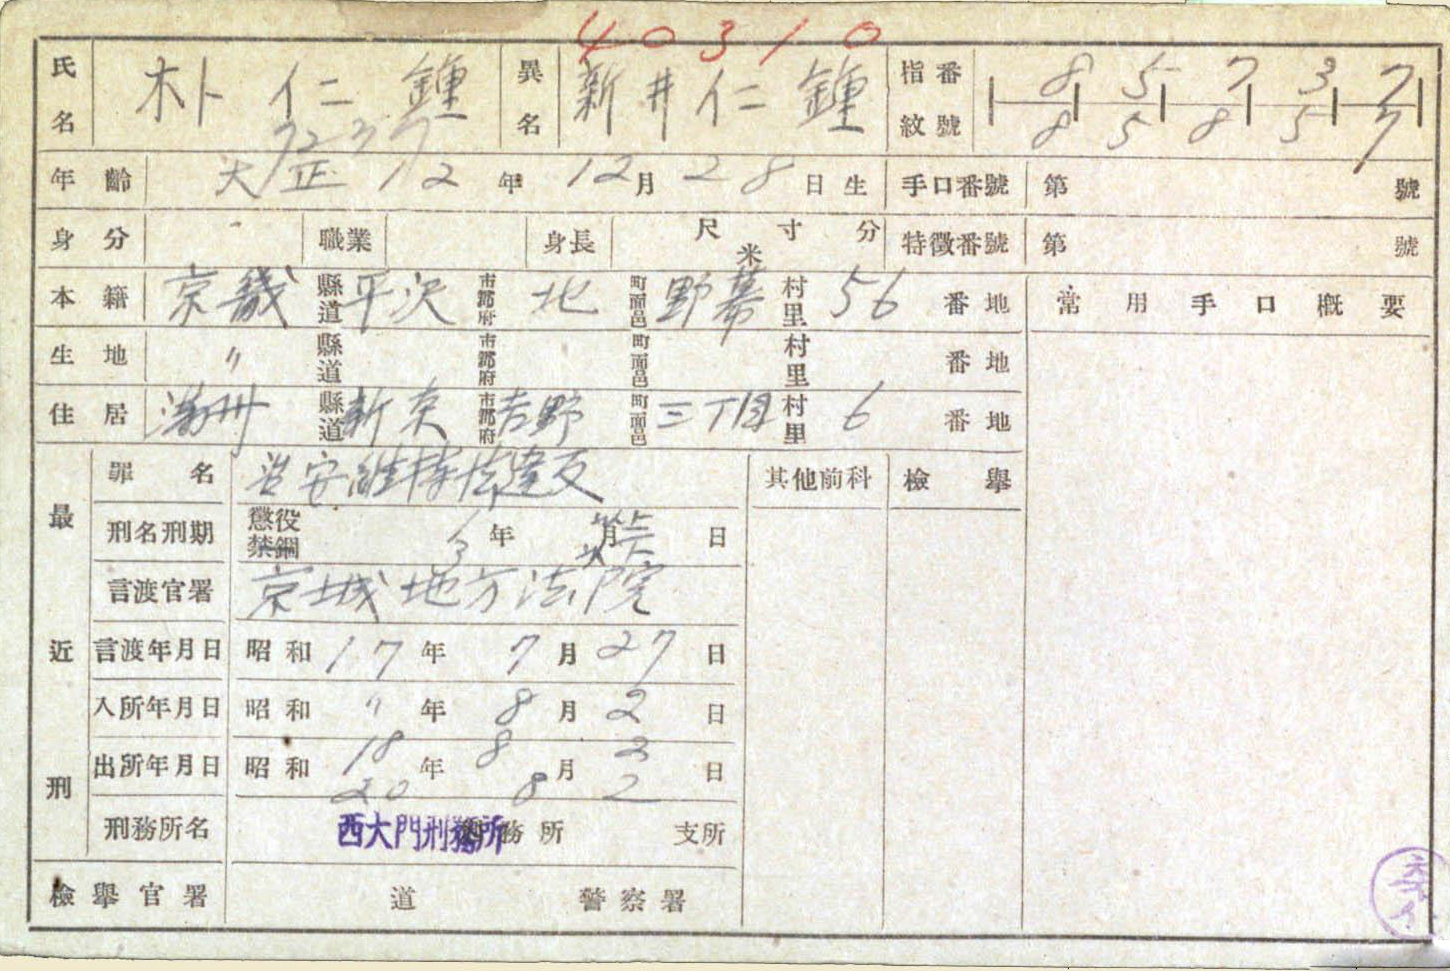 40310
氏名 朴仁鍾 異名 新井仁鍾 指紋番號 8 5 7 3 7
8 5 8 5 7
年齡 大正12年12月28日生 手口番號 第 號
身分 職業 身長 尺寸分 米 特徵番號 第 號
本籍 京畿 縣道 平沢 市郡府 地 町面邑 野幕 村里 56 番地 常用手口槪要
生地 〃 縣道 市郡府 町面邑 村里 番地
住居 滿州 縣道 新京 市郡府 吉野 町面邑 三丁目 村里 6 番地
最近刑
罪名 治安維持法違反 其他前科 檢擧
刑名刑期 懲役 禁錮 年 月 日
言渡官署 京城地方法院
言渡年月日 昭和17年7月27日
入所年月日 昭和〃年8月2日
出所年月日 昭和18年8月2日
20 8 2
刑務所名 西大門刑務所 務所 支所
檢擧官署 道 警察署